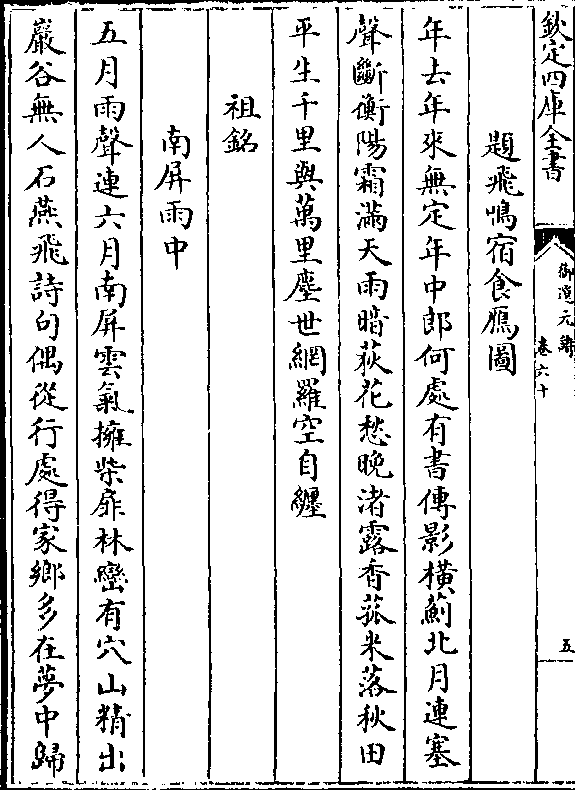 欽定四庫全書
御選元詩
卷六十
五
題飛鳴宿食鴈圖
年去年來無定年中郎何處有書傳影橫薊北月連塞
聲斷衡陽霜滿天雨暗荻花愁晚渚露香菰米落秋田
平生千里與萬里塵世網羅空自纒
祖銘
南屏雨中
五月雨聲連六月南屏雲氣擁柴扉林巒有穴山精出
巖谷無人石燕飛詩句偶從行處得家鄉多在夢中歸